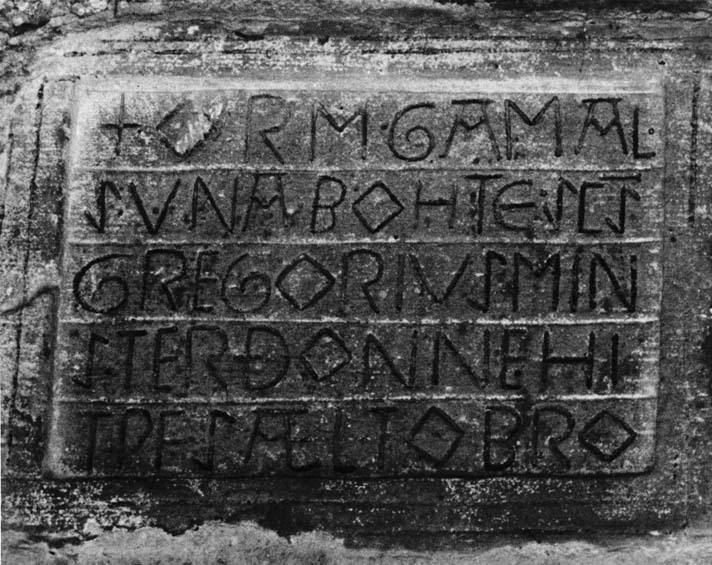 + ORM·GAMAL·
SVNA·BOHTE·SC̅S
GREGORIVS MIN
STER ÐONNE HI
T ǷES ÆL TOBRO